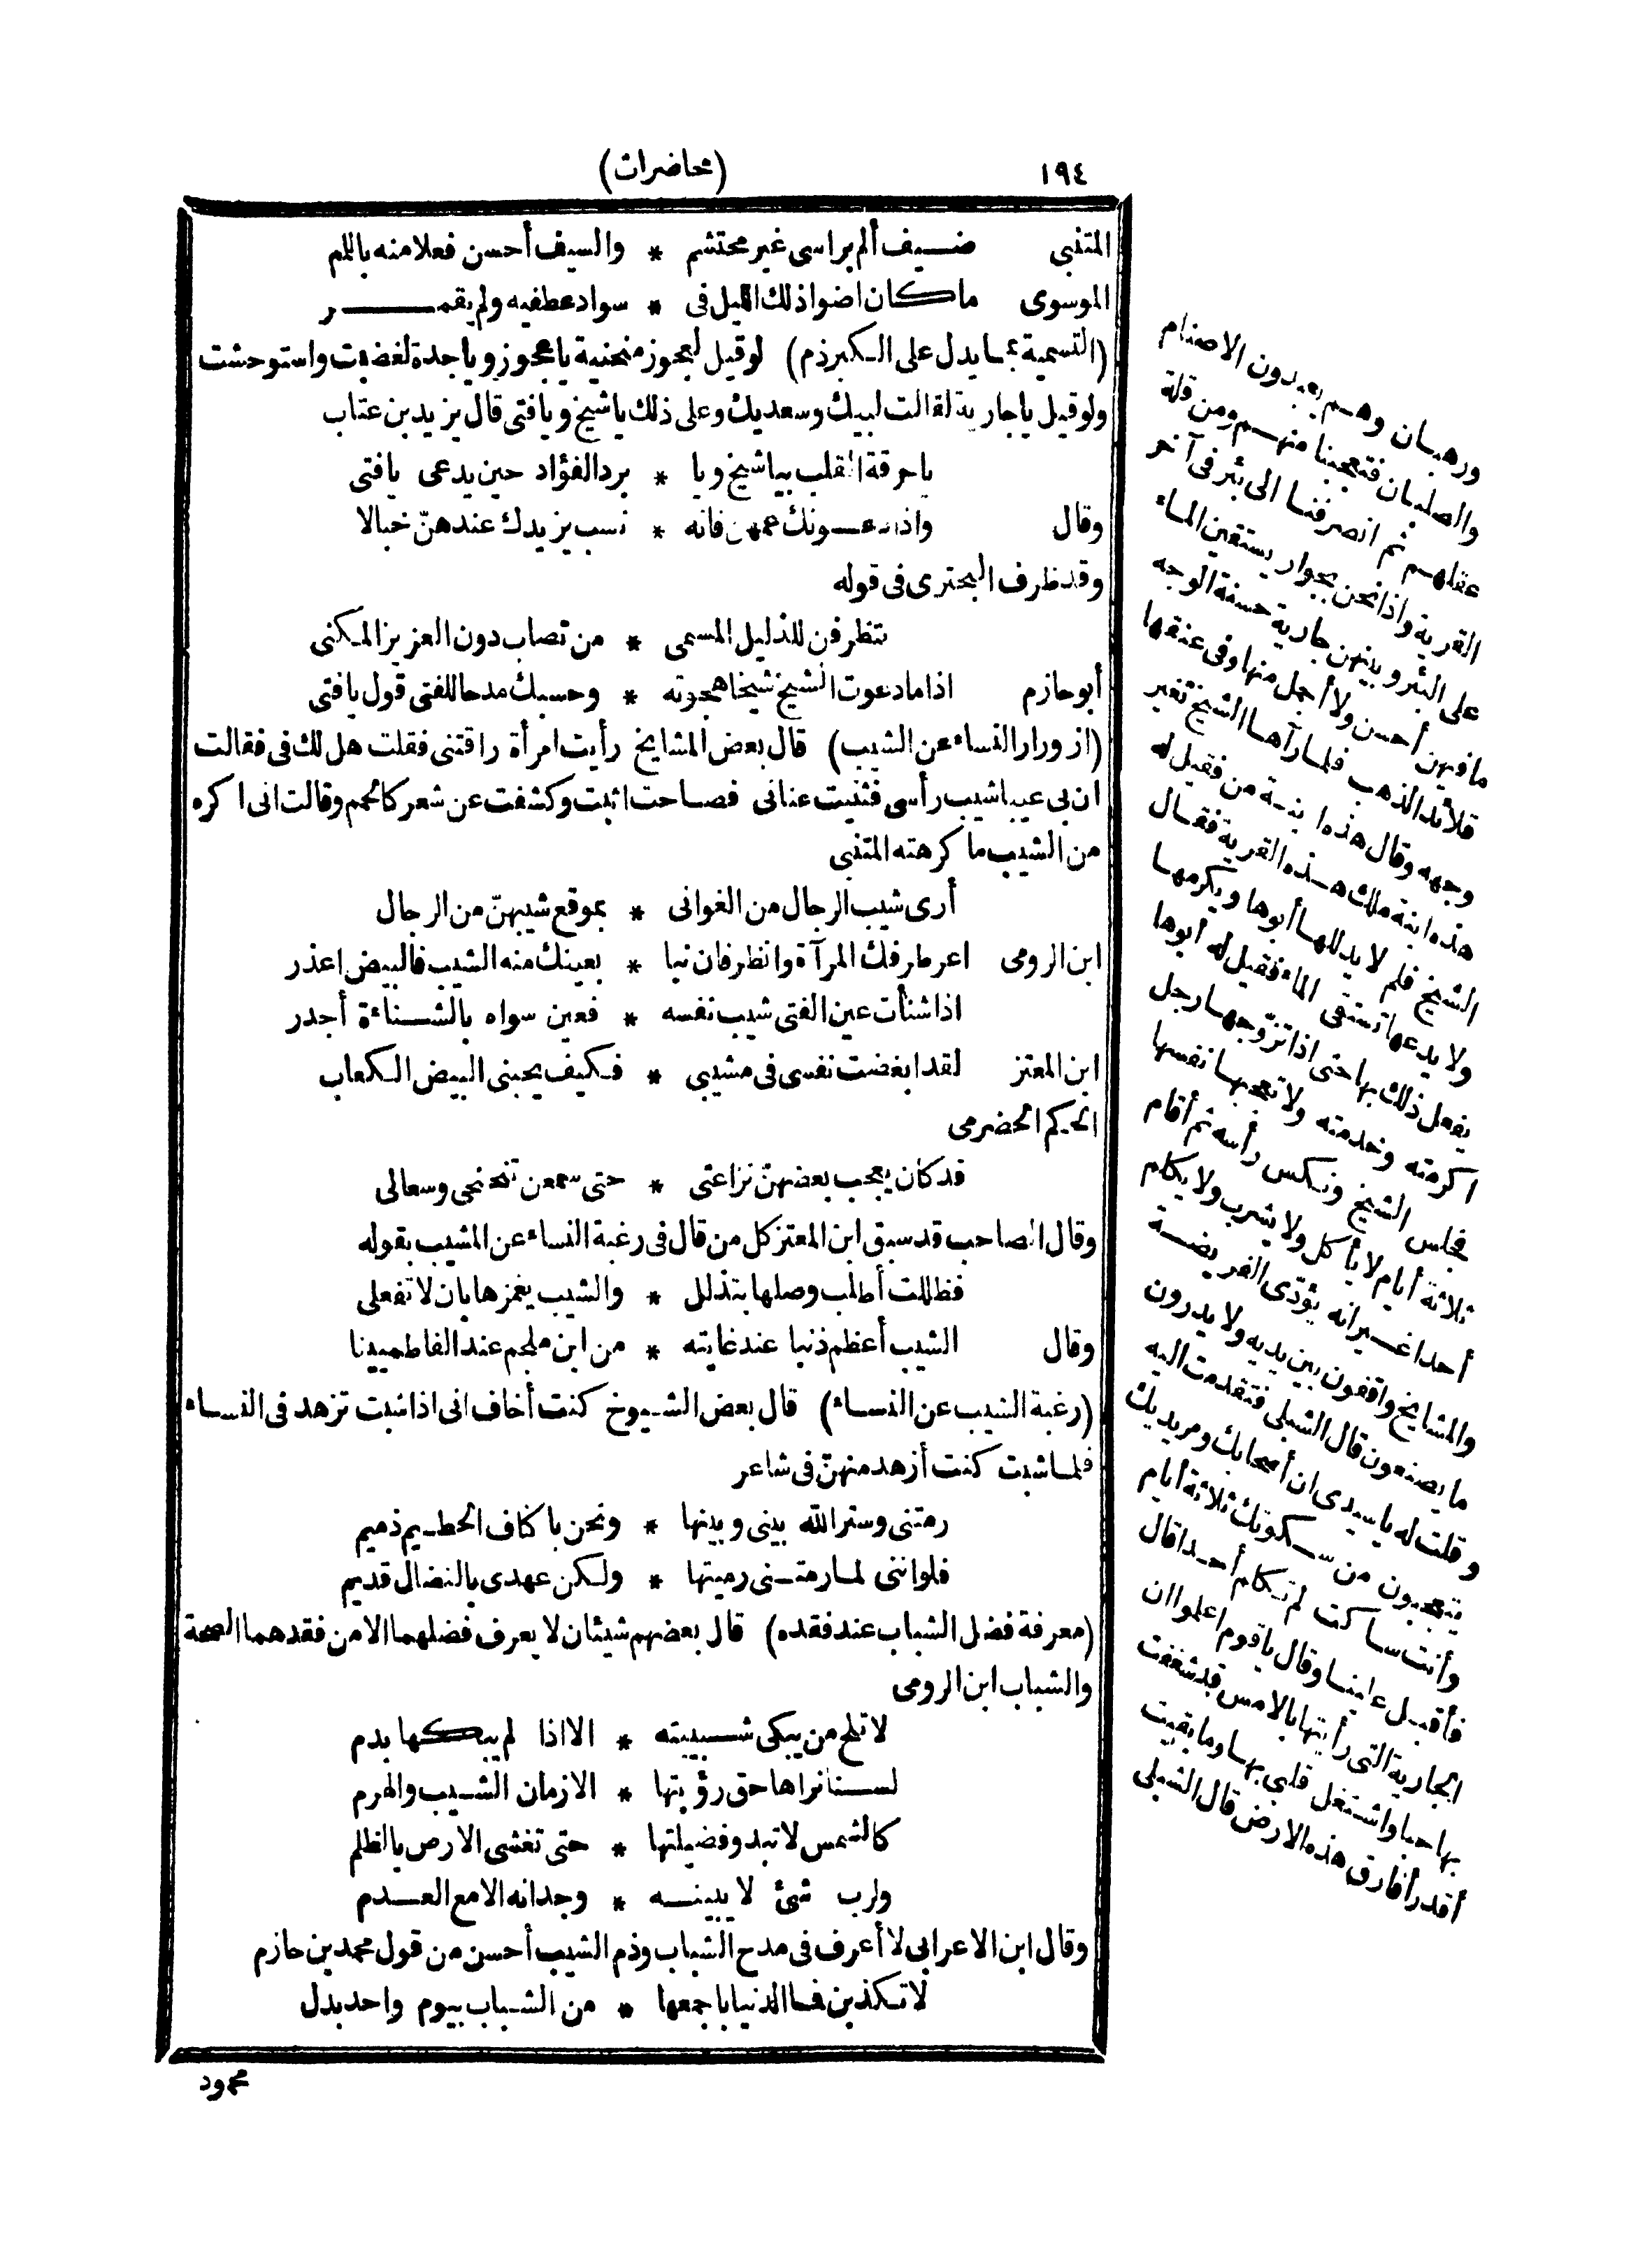 ١٩٤
(محاضرات)
المتنبى ضيف ألم براسى غير محتشم * والسيف أحسن فعلا منه باللم
الموسوى ما كان اضوا ذلك الليل فى * سواد عطفيه ولم يقمر
(التسمية بما يدل على الكبر ذم) لو قيل لعجوز منحنية يا عجوز ويا جدة لغضبت واستوحشت
ولو قيل يا جارية لقالت لبيك وسعديك وعلى ذلك يا شيخ ويا فتى قال يزيد بن عتاب
يا حرقة القلب بيا شيخ ويا * برد الفؤاد حين يدعى يا فتى
وقال واذا دعونك عمهن فانه * نسب يزيدك عندهنّ خبالا
وقد ظرف البحترى فى قوله
يتظرفن للذليل المسمى * من تصاب دون العزيز المكنى
أبو حازم اذا ما دعوت الشيخ شيخا هجوته * وحسبك مدحا للفتى قول يا فتى
(ازورار النساء عن الشيب) قال بعض المشايخ رأيت امرأة راقتنى فقلت هل لك فى فقالت
ان بى عيبا شيب رأسى فثنيت عنانى فصاحت اثبت وكشفت عن شعر كالحمم وقالت انى اكره
من الشيب ما كرهته المتنبى
أرى شيب الرجال من الغوانى * بموقع شيبهنّ من الرجال
ابن الرومى اعر طرفك المرآة وانظر فان نبا * بعينك منه الشيب فالبيض اعذر
اذا شنأت عين الفتى شيب نفسه * فعين سواه بالشناءة أجدر
ابن المعتز لقد ابغضت نفسى فى مشيبى * فكيف يحبنى البيض الكعاب
الحكم الحضرمى
قد كان يعجب بعضهنّ نزاعتى * حتى سمعن تنحنحى وسعالى
وقال الصاحب قد سبق ابن المعتز كل من قال فى رغبة النساء عن المشيب بقوله
فظللت أطلب وصلها بتذلل * والشيب يغمزها بان لا تفعلى
وقال الشيب أعظم ذنبا عند غانيته * من ابن ملجم عند الفاطميينا
(رغبة الشيب عن النساء) قال بعض الشيوخ كنت أخاف انى اذا شبت تزهد فى النساء
فلما شبت كنت أزهد منهنّ فى شاعر
رمتنى وستر الله بينى وبينها * ونحن باكناف الحطيم ذميم
فلو اننى لما رمتنى رميتها * ولكن عهدى بالنضال قديم
(معرفة فضل الشباب عند فقده) قال بعضهم شيئان لا يعرف فضلهما الا من فقدهما الصحة
والشباب ابن الرومى
لا تلح من يبكى شبيبته * الا اذا لم يبكها بدم
لسنا نراها حق رؤيتها * الا زمان الشيب والهرم
كالشمس لا تبدو فضيلتها * حتى تغشى الارض بالظلم
ولرب شئ لا يبينه * وجدانه الا مع العدم
وقال ابن الاعرابى لا أعرف فى مدح الشباب وذم الشيب أحسن من قول محمد بن حازم
لا تكذبن فما الدنيا باجمعها * من الشباب بيوم واحد بدل
محمود
ورهبان وهم يعبدون الاصنام
والصلبان فتعجبنا منهم ومن قلة
عقلهم ثم انصرفنا الى بئر فى آخر
القرية واذا نحن بجوار يستقين الماء
على البئر وبينهن جارية حسنة الوجه
ما فيهن أحسن ولا أجمل منها وفى عنقها
قلائد الذهب فلما رآها الشيخ تغير
وجهه وقال هذه ابنة من فقيل له
هذه ابنة ملك هذه القرية فقال
الشيخ فلم لا يدللها أبوها ويكرمها
ولا يدعها تستقى الماء فقيل له أبوها
يفعل ذلك بها حتى اذا تزوّجها رجل
اكرمته وخدمته ولا تعجبها نفسها
فجلس الشيخ ونكس رأسه ثم أقام
ثلاثة أيام لا يأكل ولا يشرب ولا يكلم
أحدا غير انه يؤدّى الفريضة
والمشايخ واقفون بين يديه ولا يدرون
ما يصنعون قال الشبلى فتقدمت اليه
وقلت له يا سيدى ان أصحابك ومريديك
يتعجبون من سكوتك ثلاثة أيام
وأنت ساكت لم تكلم أحدا قال
فأقبل علينا وقال يا قوم اعلموا ان
الجارية التى رأيتها بالامس قد شغفت
بها حبا واشتغل قلبى بها وما بقيت
أقدر أفارق هذه الارض قال الشبلى